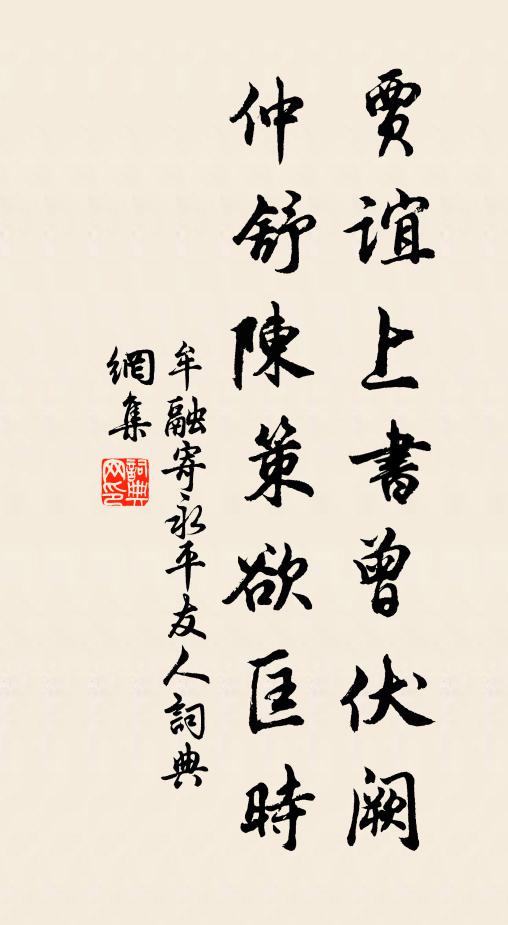 賈誼上書曾伏闕
仲舒陳策欲匡時
牟融寄永平友人詞典
網集
詞典
网印